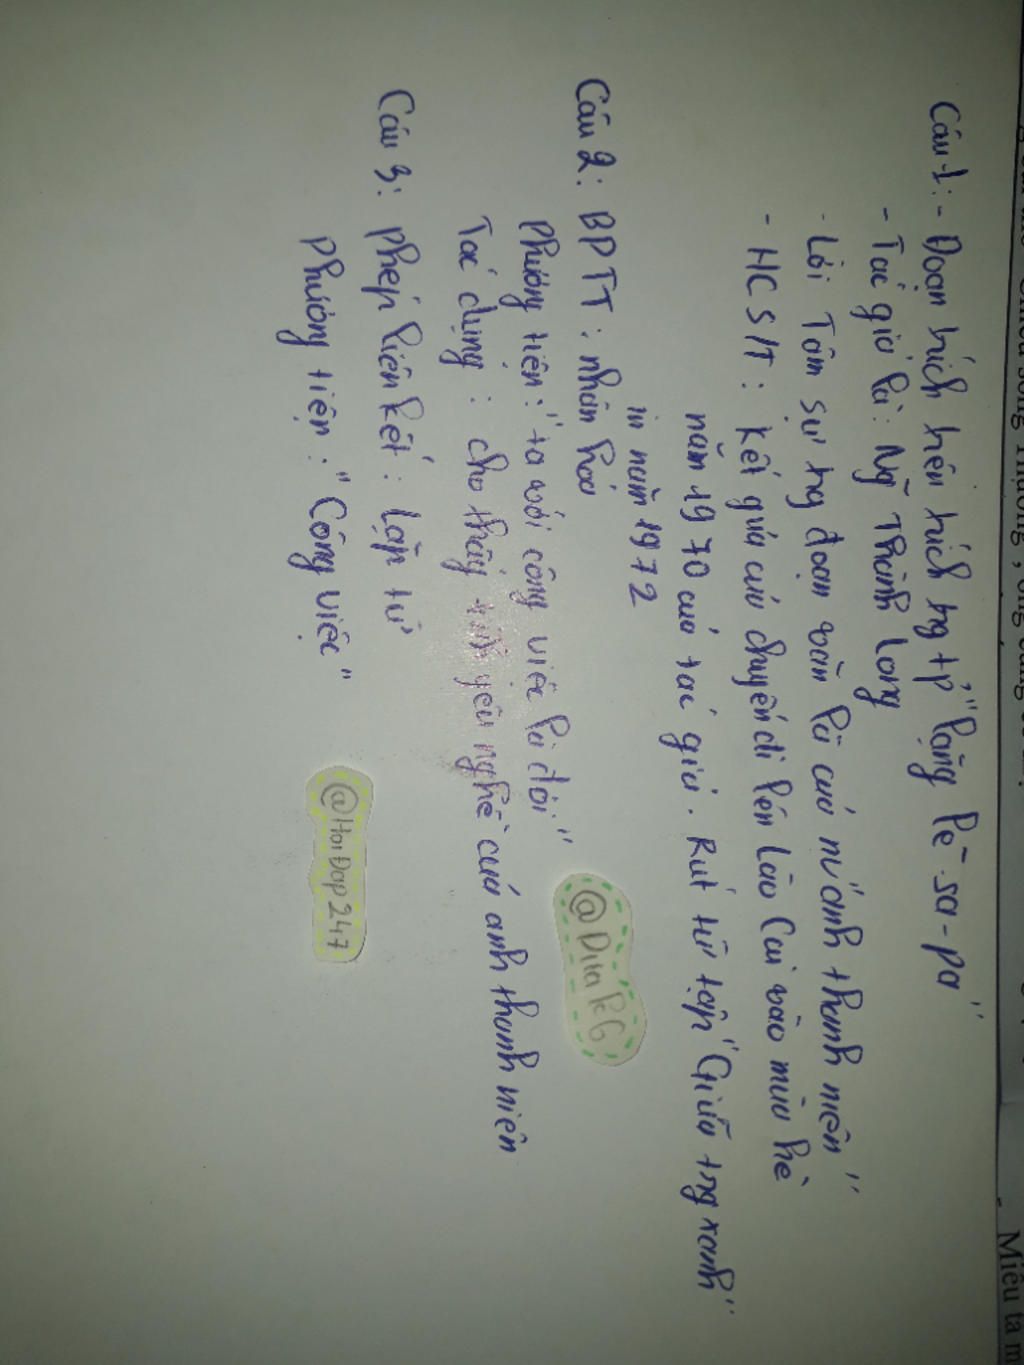 Câu 1: - Đoạn trích trên trích trg tp "lặng lẽ-sa-pa"
- Tác giả là: Ng~ Thành Long
- Lời Tâm sự trg đoạn văn là của n/v "anh thanh niên"
- HCS/T: kết quả của chuyến đi lên Lào Cai vào mùa hè
năm 1970 của tác giả. Rút từ tập "Giữa trg xanh"
in năm 1972
Câu 2: BPTT: nhân hóa
Phương tiện: "ta với công việc là đôi"
Tác dụng: cho thấy tình yêu nghề của anh thanh niên
Câu 3: Phép liên kết: Lặp từ
Phương tiện: "Công việc"
@HoiDap247
Miêu tả